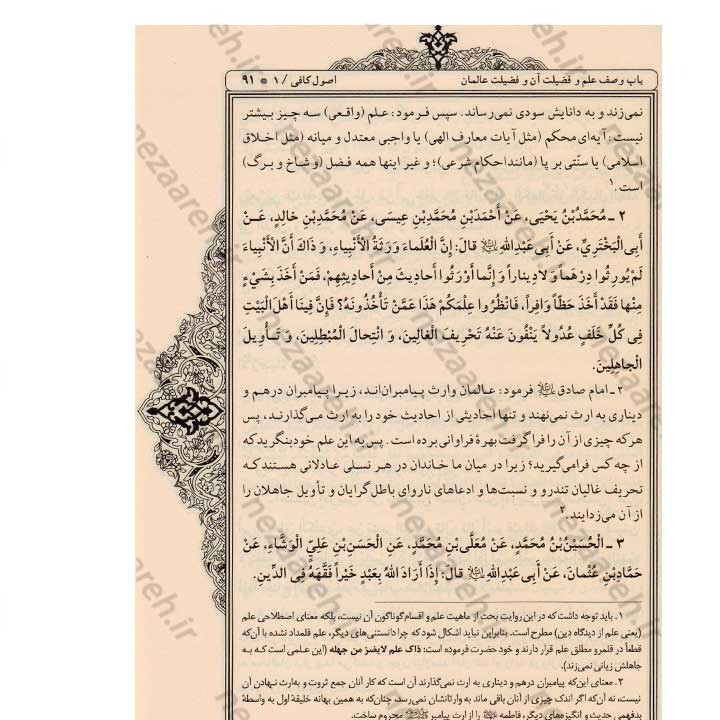 باب وصف علم و فضیلت آن و فضیلت عالمان
اصول کافی / ۱ ● ۹۱
نمی‌زند و به دانایش سودی نمی‌رساند. سپس فرمود: علم (واقعی) سه چیز بیشتر
نیست: آیه‌ای محکم (مثل آیات معارف الهی) یا واجبی معتدل و میانه (مثل اخلاق
اسلامی) یا سنّتی بر پا (مانند احکام شرعی)؛ و غیر اینها همه فضل (و شاخ و برگ)
است.۱
۲ ـ مُحَمَّدُبْنُ یَحْیَی، عَنْ أَحْمَدَبْنِ مُحَمَّدِبْنِ عِیسَی، عَنْ مُحَمَّدِبْنِ خالِدٍ، عَنْ
أَبِی الْبَخْتَرِیِّ، عَنْ أَبِی عَبْدِاللهِ ﷷ قالَ: إِنَّ الْعُلَماءَ وَرَثَةُ الْأَنْبِیاءِ، وَ ذَاكَ أَنَّ الْأَنْبِیاءَ
لَمْ یُورِثُوا دِرْهَماً وَ لا دِیناراً وَ إِنَّما أَوْرَثُوا أَحادِیثَ مِنْ أَحادِیثِهِمْ، فَمَنْ أَخَذَ بِشَیْءٍ
مِنْها فَقَدْ أَخَذَ حَظّاً وَافِراً، فَانْظُرُوا عِلْمَكُمْ هٰذَا عَمَّنْ تَأْخُذُونَهُ؟ فَإِنَّ فِینَا أَهْلَ الْبَیْتِ
فِی كُلِّ خَلَفٍ عُدُولاً یَنْفُونَ عَنْهُ تَحْرِیفَ الْغالِینَ، وَ انْتِحالَ الْمُبْطِلِینَ، وَ تَأْوِیلَ
الْجاهِلِینَ.
۲ ـ امام صادق فرمود: عالمان وارث پیامبران‌اند، زیرا پیامبران درهم و
دیناری به ارث نمی‌نهند و تنها احادیثی از احادیث خود را به ارث می‌گذارند، پس
هر که چیزی از آن را فرا گرفت بهرهٔ فراوانی برده است. پس به این علم خود بنگرید که
از چه کس فرامی‌گیرید؟ زیرا در میان ما خاندان در هر نسلی عادلانی هستند که
تحریف غالیان تندرو و نسبت‌ها و ادعاهای ناروای باطل‌گرایان و تأویل جاهلان را
از آن می‌زدایند.۲
۳ ـ الْحُسَیْنُ‌بْنُ مُحَمَّدٍ، عَنْ مُعَلَّی بْنِ مُحَمَّدٍ، عَنِ الْحَسَنِ‌بْنِ عَلِیٍّ الْوَشَّاءِ، عَنْ
حَمَّادِبْنِ عُثْمانَ، عَنْ أَبِی عَبْدِاللهِ قالَ: إِذَا أَرَادَ اللهُ بِعَبْدٍ خَیْراً فَقَّهَهُ فِی الدِّینِ.
۱. باید توجه داشت که در این روایت بحث از ماهیت علم و اقسام گوناگون آن نیست، بلکه معنای اصطلاحی علم
(یعنی علم از دیدگاه دین) مطرح است. بنابراین نباید اشکال شود که چرا دانستنی‌های دیگر، علم قلمداد نشده با آن‌که
قطعاً در قلمرو مطلق علم قرار دارند و خود حضرت فرموده است: ذاک علم لایضرّ من جهله (این علمی است که به
جاهلش زیانی نمی‌زند).
۲. معنای این‌که پیامبران درهم و دیناری به ارث نمی‌گذارند آن است که کار آنان جمع ثروت و به‌ارث نهادن آن
نیست، نه آن‌که اگر اندک چیزی از آنان باقی ماند به وارثانشان نمی‌رسد، چنان‌که به همین بهانه خلیفهٔ اول به واسطهٔ
بدفهمی حدیث و انگیزه‌های دیگر، فاطمه را از ارث پیامبر محروم ساخت.
nezaareh.ir